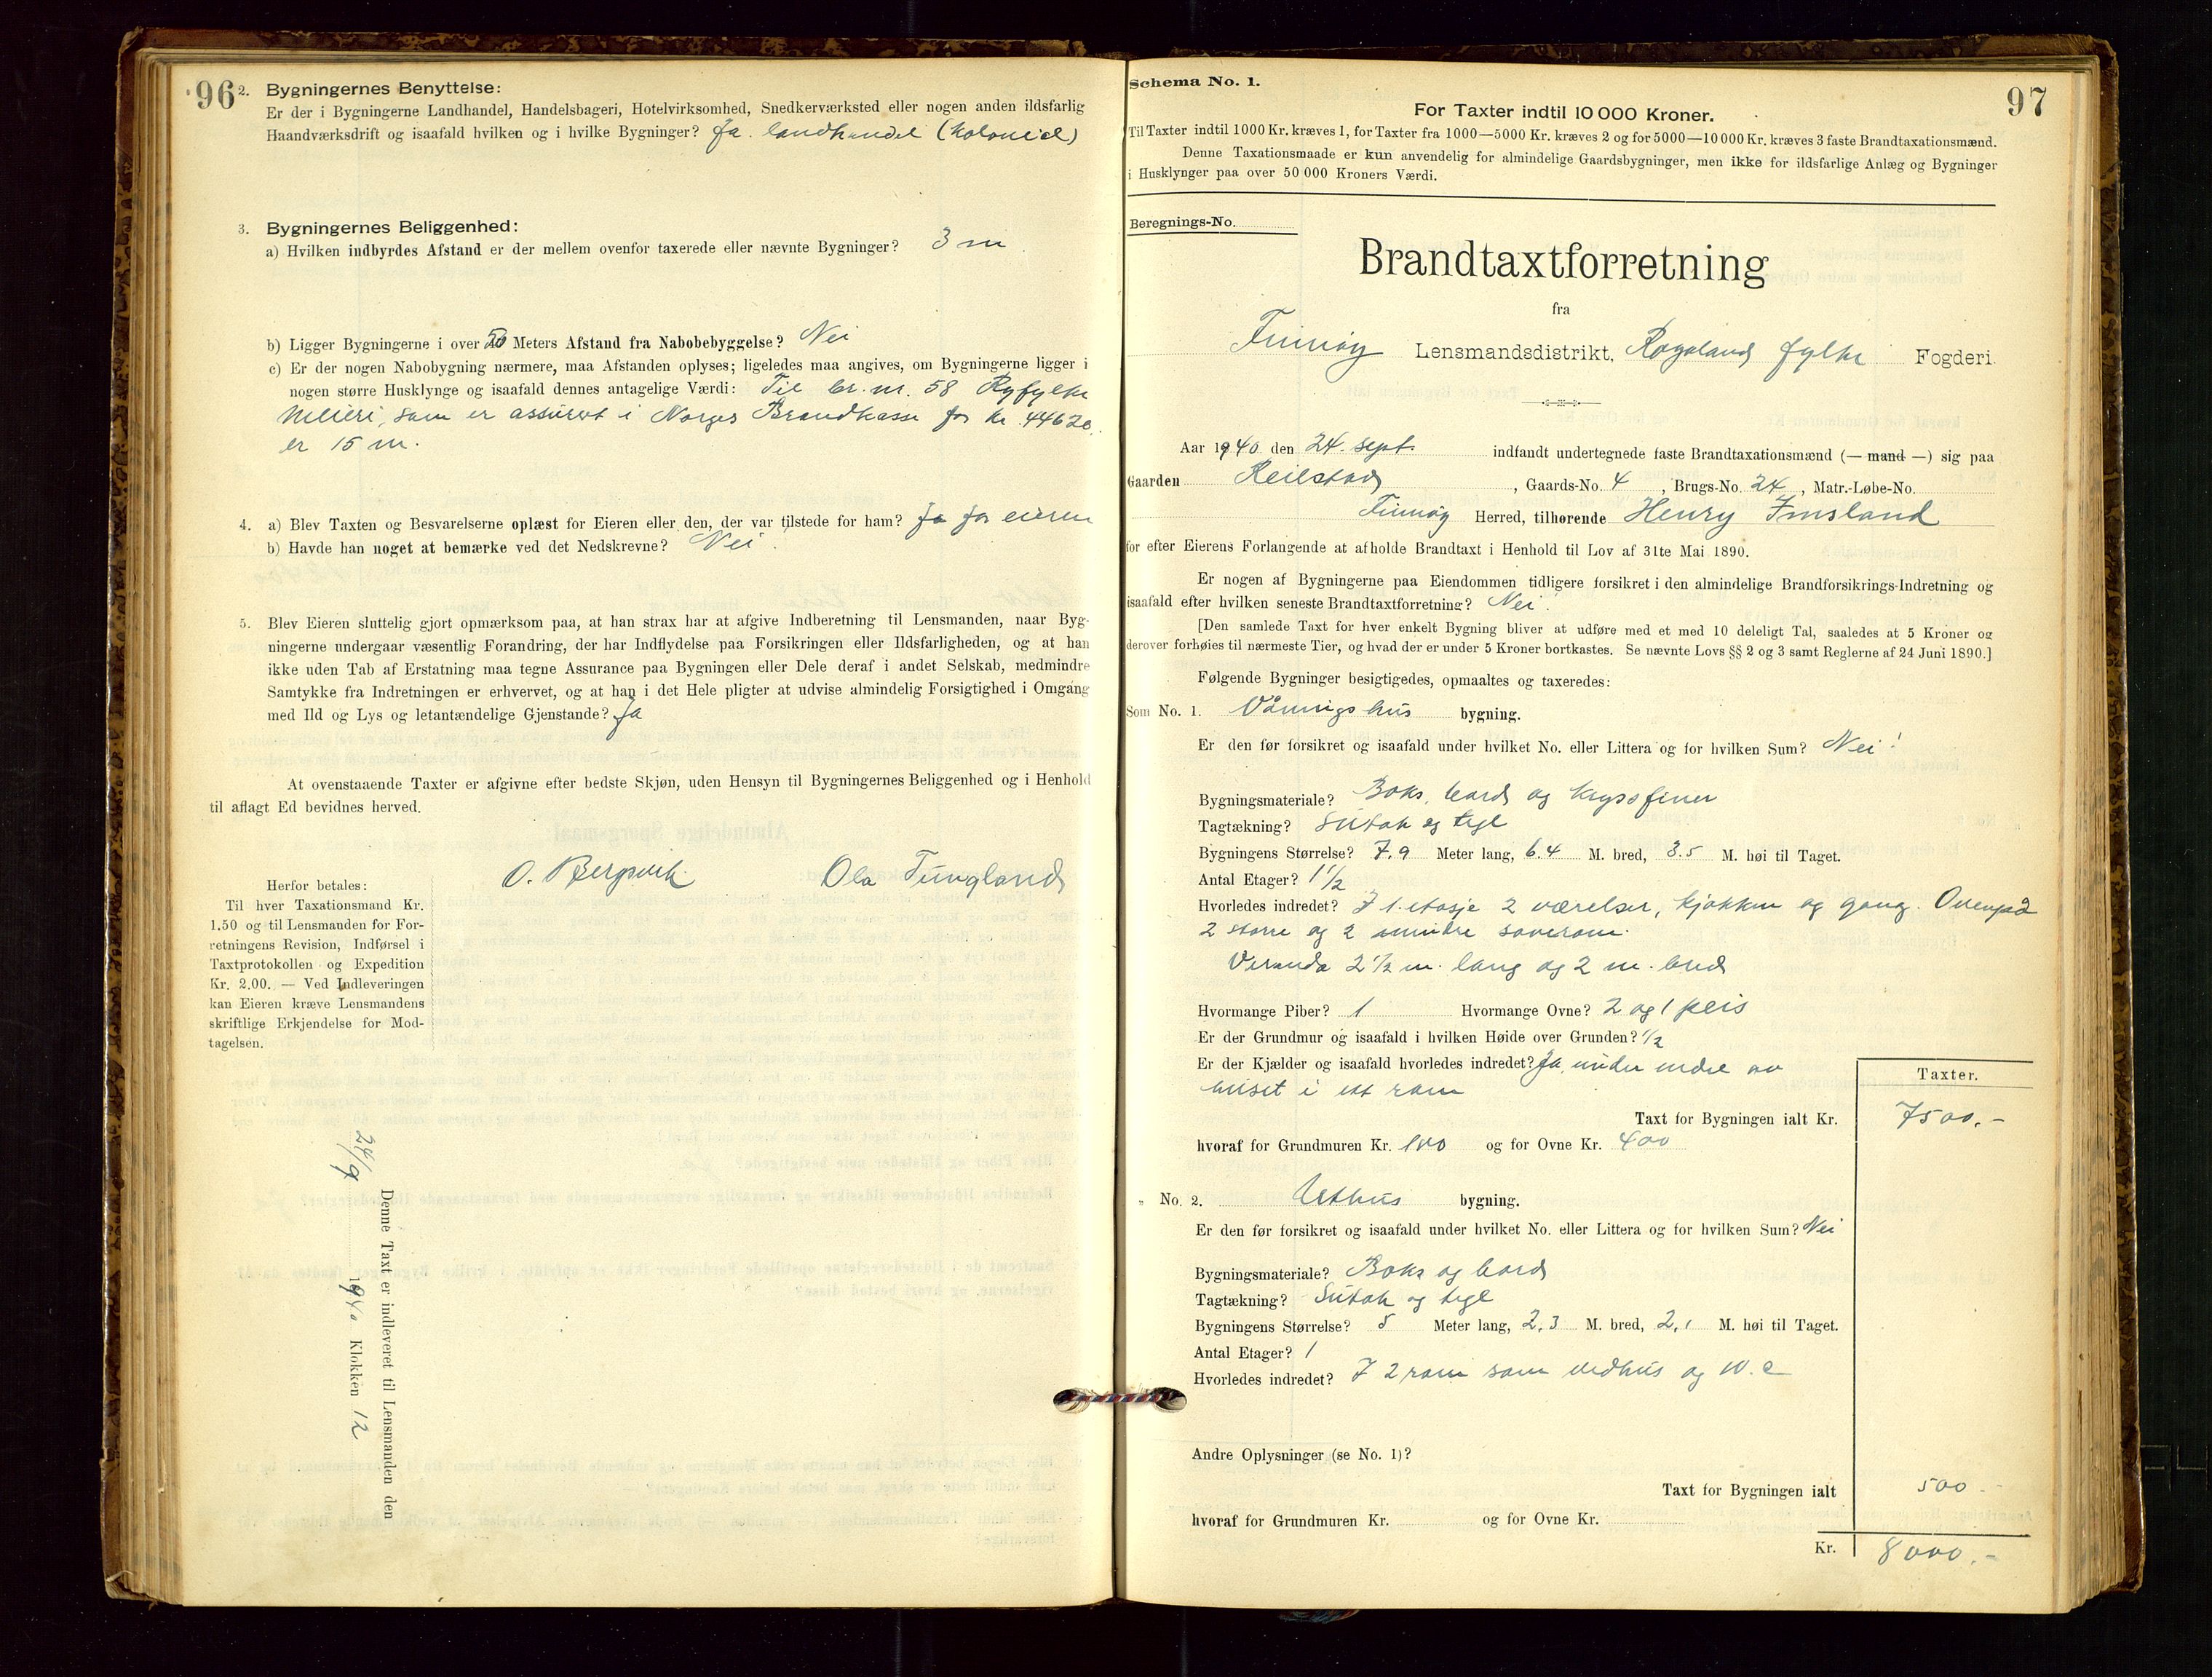 96
2. Bygningernes Benyttelse:
Er der i Bygningerne Landhandel, Handelsbageri, Hotelvirksomhed, Snedkerværksted eller nogen anden ildsfarlig
Haandværksdrift og isaafald hvilken og i hvilke Bygninger? Ja. landhandel (kolonial)
3. Bygningernes Beliggenhed:
a) Hvilken indbyrdes Afstand er der mellem ovenfor taxerede eller nævnte Bygninger? 3 m
b) Ligger Bygningerne i over 50 Meters Afstand fra Nabobebyggelse? Nei
c) Er der nogen Nabobygning nærmere, maa Afstanden oplyses; ligeledes maa angives, om Bygningerne ligger i
nogen større Husklynge og isaafald dennes antagelige Værdi: Til br. nr. 58 Ryfylke
Meieri, som er assurert i Norges Brandkasse for kr. 44620.
er 15 m.
4. a) Blev Taxten og Besvarelserne oplæst for Eieren eller den, der var tilstede for ham? Ja for eieren
b) Havde han noget at bemærke ved det Nedskrevne? Nei.
5. Blev Eieren sluttelig gjort opmærksom paa, at han strax har at afgive Indberetning til Lensmanden, naar Byg-
ningerne undergaar væsentlig Forandring, der har Indflydelse paa Forsikringen eller Ildsfarligheden, og at han
ikke uden Tab af Erstatning maa tegne Assurance paa Bygningen eller Dele deraf i andet Selskab, medmindre
Samtykke fra Indretningen er erhvervet, og at han i det Hele pligter at udvise almindelig Forsigtighed i Omgang
med Ild og Lys og letantændelige Gjenstande? Ja
At ovenstaaende Taxter er afgivne efter bedste Skjøn, uden Hensyn til Bygningernes Beliggenhed og i Henhold
til aflagt Ed bevidnes herved.
O. Bergsvik Ola Tungland
Herfor betales:
Til hver Taxationsmand Kr.
1.50 og til Lensmanden for For-
retningens Revision, Indførsel i
Taxtprotokollen og Expedition
Kr. 2.00. — Ved Indleveringen
kan Eieren kræve Lensmandens
skriftlige Erkjendelse for Mod-
tagelsen.
Denne Taxt er indleveret til Lensmanden den
24/9 1940 Klokken 12
97
Schema No. 1.
For Taxter indtil 10 000 Kroner.
Til Taxter indtil 1000 Kr. kræves 1, for Taxter fra 1000—5000 Kr. kræves 2 og for 5000—10 000 Kr. kræves 3 faste Brandtaxationsmænd.
Denne Taxationsmaade er kun anvendelig for almindelige Gaardsbygninger, men ikke for ildsfarlige Anlæg og Bygninger
i Husklynger paa over 50 000 Kroners Værdi.
Beregnings-No.
Brandtaxtforretning
fra
Finnøy Lensmandsdistrikt, Rogaland fylke Fogderi
Aar 1940 den 24. sept. indfandt undertegnede faste Brandtaxationsmænd (— mand —) sig paa
Gaarden Reilstad, Gaards-No. 4, Brugs-No. 24, Matr.-Løbe-No.
Finnøy Herred, tilhørende Henry Imsland
for efter Eierens Forlangende at afholde Brandtaxt i Henhold til Lov af 31te Mai 1890.
Er nogen af Bygningerne paa Eiendommen tidligere forsikret i den almindelige Brandforsikrings-Indretning og
isaafald efter hvilken seneste Brandtaxtforretning? Nei.
[Den samlede Taxt for hver enkelt Bygning bliver at udføre med et med 10 deleligt Tal, saaledes at 5 Kroner og
derover forhøies til nærmeste Tier, og hvad der er under 5 Kroner bortkastes. Se nævnte Lovs §§ 2 og 3 samt Reglerne af 24 Juni 1890.]
Følgende Bygninger besigtigedes, opmaaltes og taxeredes:
Som No. 1. Våningshus bygning.
Er den før forsikret og isaafald under hvilket No. eller Littera og for hvilken Sum? Nei!
Bygningsmateriale? Boks, bord og kryssfiner
Tagtækning? Sutak og tegl
Bygningens Størrelse? 7.9 Meter lang, 6.4 M. bred, 3.5 M. høi til Taget.
Antal Etager? 1 1/2
Hvorledes indredet? I 1. etasje 2 værelser, kjøkken og gang. Ovenpå
2 større og 2 mindre soverom.
Veranda 2 1/2 m. lang og 2 m. bred
Hvormange Piber? 1 Hvormange Ovne? 2 og 1 peis
Er der Grundmur og isaafald i hvilken Høide over Grunden? 1/2
Er der Kjælder og isaafald hvorledes indredet? Ja, under av
huset i ett rom
Taxter.
Taxt for Bygningen ialt Kr. 7500.-
hvoraf for Grundmuren Kr. 100 og for Ovne Kr. 400
„ No. 2. Uthus bygning.
Er den før forsikret og isaafald under hvilket No. eller Littera og for hvilken Sum? Nei
Bygningsmateriale? Boks og bord
Tagtækning? Sutak og tegl
Bygningens Størrelse? 5 Meter lang, 2,3 M. bred, 2,1 M. høi til Taget.
Antal Etager? 1
Hvorledes indredet? I 2 rom som vedhus og W.c
Andre Oplysninger (se No. 1)?
Taxt for Bygningen ialt 500.-
hvoraf for Grundmuren Kr. og for Ovne Kr.
Kr. 8000.-